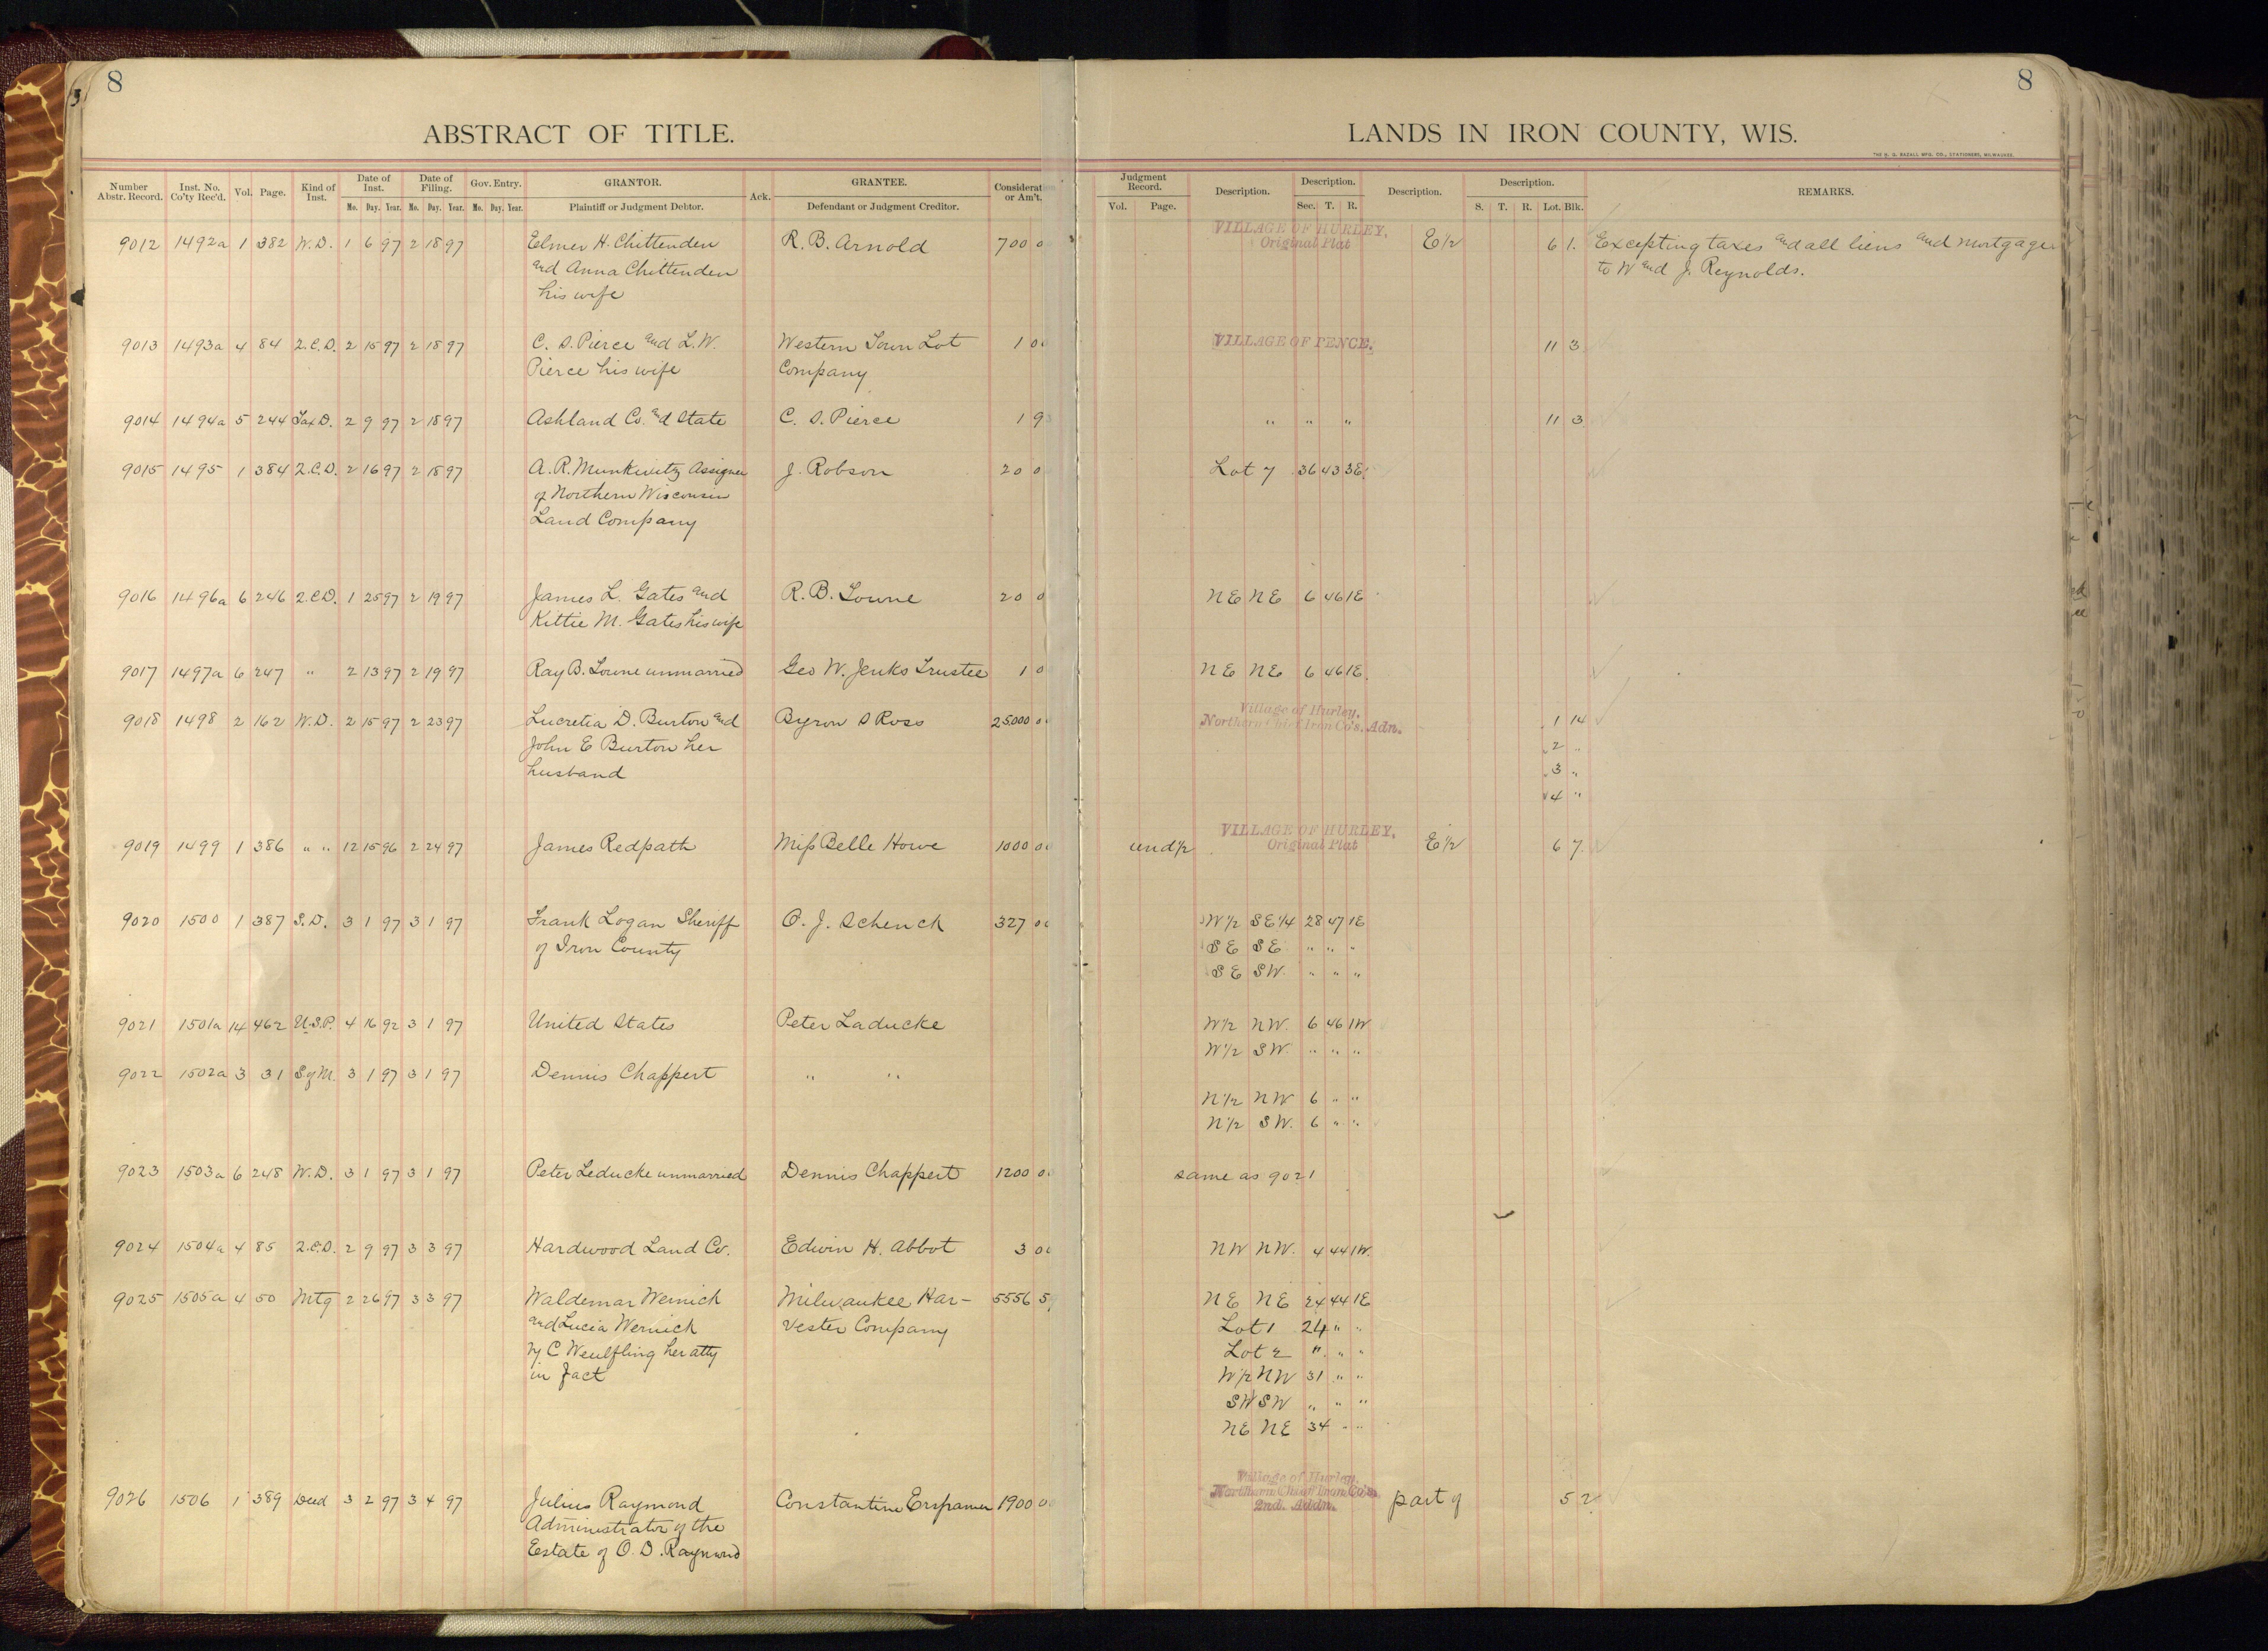 8
8
ABSTRACT OF TITLE.
LANDS IN IRON COUNTY, WIS.
THE H. G. RAZALL MFG. CO., STATIONERS, MILWAUKEE.
Number Abstr. Record. Inst. No. Co'ty Rec'd. Vol. Page. Kind of Inst. Date of Inst. Mo. Day. Year. Date of Filing. Mo. Day. Year. Gov. Entry. Mo. Day. Year. GRANTOR. Plaintiff or Judgment Debtor. Ack. GRANTEE. Defendant or Judgment Creditor. Consideration or Am't. Judgment Record. Vol. Page. Description. Description. Sec. T. R. Description. Description. S. T. R. Lot. Blk. REMARKS.
9012 1492a 1 382 W.D. 1 6 97 2 18 97 Elmer H. Chittenden R. B. Arnold 700 0 VILLAGE OF HURLEY, Original Plat E½ 6 1. Excepting taxes and all liens and mortgage
and Anna Chittenden to W and J. Reynolds.
his wife
9013 1493a 4 84 2.C.D. 2 15 97 2 18 97 C. S. Pierce and L. W. Western Town Lot 1 00 VILLAGE OF PENCE. 11 3
Pierce his wife Company
9014 1494a 5 244 Tax D. 2 9 97 2 18 97 Ashland Co. and State C. S. Pierce 1 93 " " " 11 3
9015 1495 1 384 2.C.D. 2 16 97 2 18 97 A. R. Munkwitz Assignee J. Robson 20 0 Lot 7 36 43 3E.
of Northern Wisconsin
Land Company
9016 1496a 6 246 2.C.D. 1 25 97 2 19 97 James L. Gates and R. B. Lowne 20 0 NE NE 6 46 1E
Kittie M. Gates his wife
9017 1497a 6 247 " 2 13 97 2 19 97 Ray B. Lowne unmarried Geo W. Jenks Trustee 1 0 NE NE 6 46 1E.
9018 1498 2 162 W.D. 2 15 97 2 23 97 Lucretia D. Burton and Byron S Ross 25000 0 Village of Hurley, Northern Chief Iron Co's. Adn. 1 14
John E Burton her 2 "
husband 3 "
4 "
9019 1499 1 386 " " 12 15 96 2 24 97 James Redpath Miss Belle Howe 1000 00 und½ VILLAGE OF HURLEY, Original Plat E½ 6 7.
9020 1500 1 387 S.D. 3 1 97 3 1 97 Frank Logan Sheriff O. J. Schenck 327 00 W½ SE¼ 28 47 1E
of Iron County SE SE " " "
SE SW. " " "
9021 1501a 14 462 U.S.P. 4 16 92 3 1 97 United States Peter Laducke W½ NW. 6 46 1W
W½ SW. " " "
9022 1502a 3 31 S of M. 3 1 97 3 1 97 Dennis Chappert " "
N½ NW 6 " "
N½ SW. 6 " "
9023 1503a 6 248 W.D. 3 1 97 3 1 97 Peter Leducke unmarried Dennis Chappert 1200 00 same as 9021
9024 1504a 4 85 2.C.D. 2 9 97 3 3 97 Hardwood Land Co. Edwin H. Abbot 3 00 NW NW. 4 44 1W.
9025 1505a 4 50 Mtg 2 26 97 3 3 97 Waldemar Wernich Milwaukee Har- 5556 5 NE NE 24 44 1E
and Lucia Wernich vester Company Lot 1 24 " "
by C Weulfling her atty Lot 2 " " "
in fact W½ NW 31 " "
SW SW " " "
NE NE 34 " "
9026 1506 1 389 Deed 3 2 97 3 4 97 Julius Raymond Constantine 1900 00 Village of Hurley, Northern Chief Iron Co's. 2nd. Addn. part of 5 2
Administrator of the
Estate of O. D. Raymond